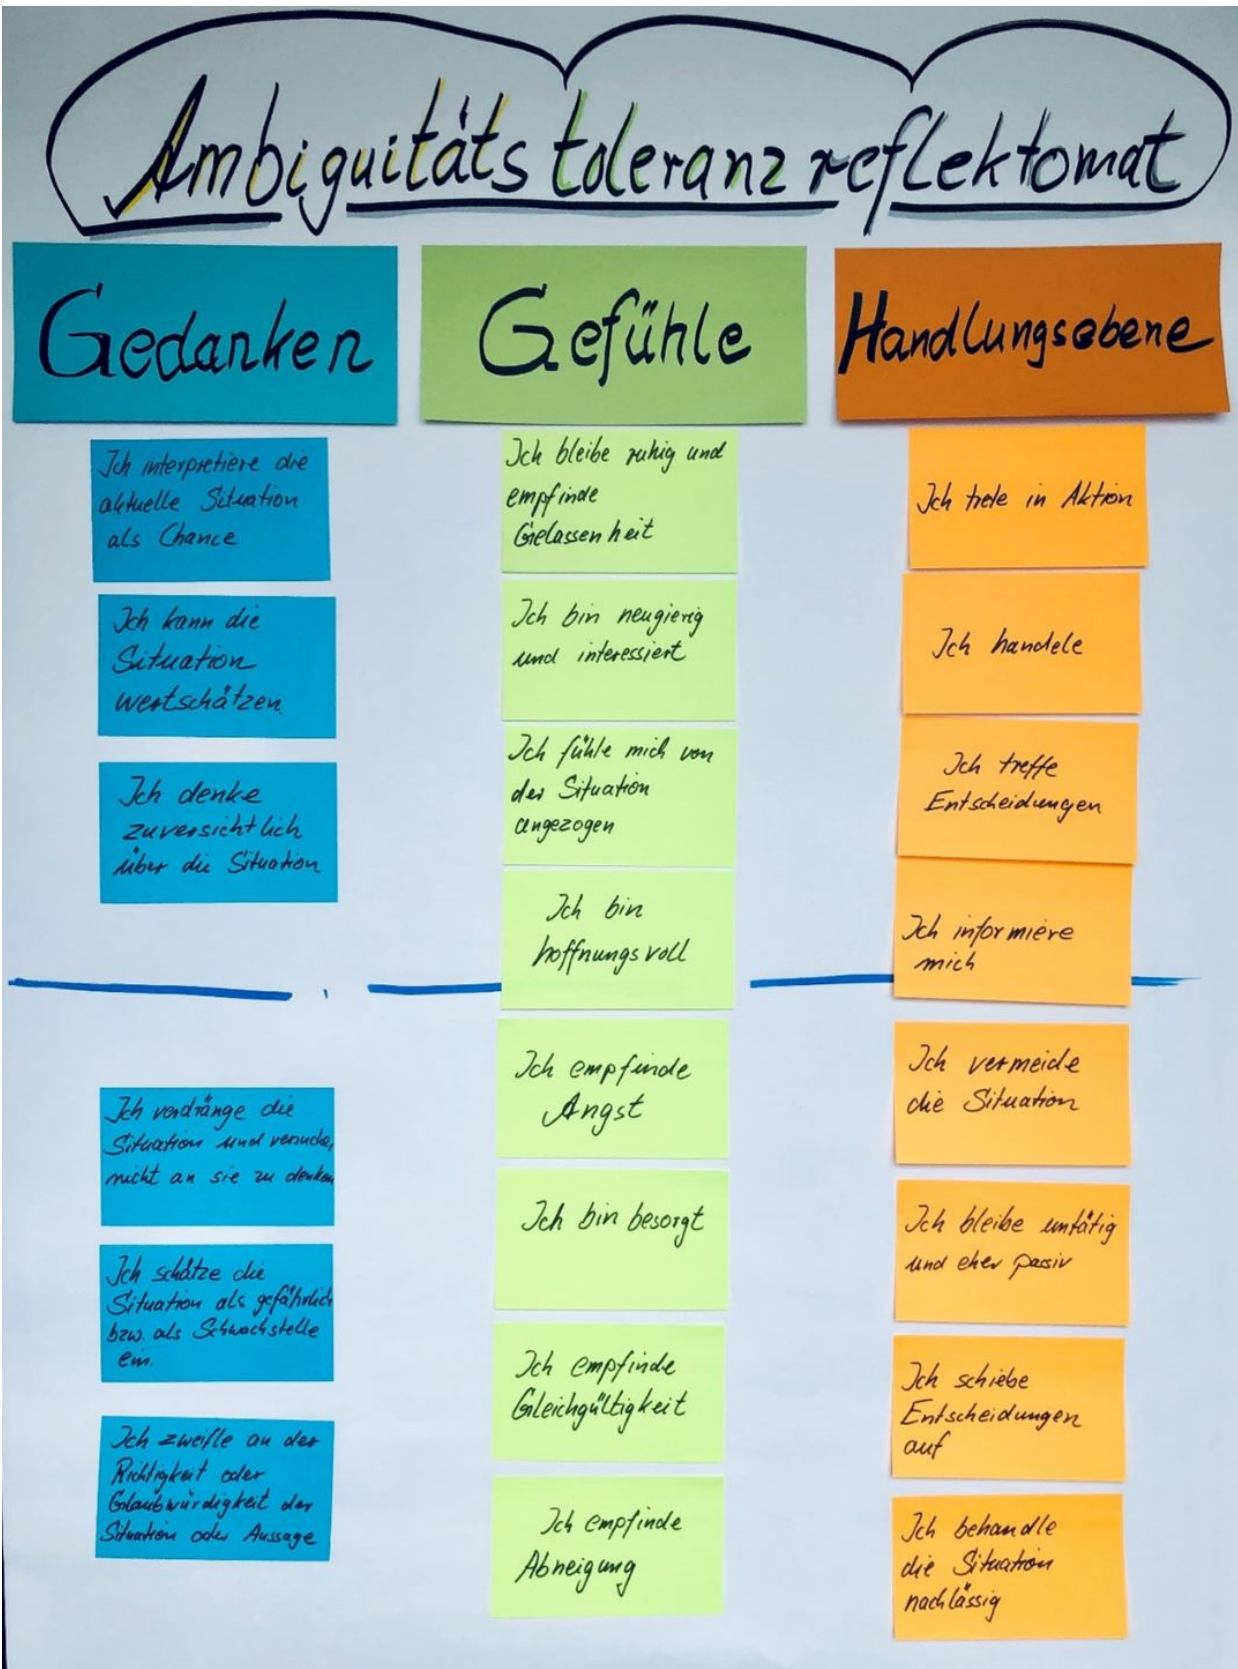 Ambiguitätstoleranzreflektomat
Gedanken
Ich interpretiere die
aktuelle Situation
als Chance
Ich kann die
Situation
wertschätzen.
Ich denke
zuversichtlich
über die Situation
Ich verdränge die
Situation und versuche,
nicht an sie zu denken
Ich schätze die
Situation als gefährlich
bzw. als Schwachstelle
ein.
Ich zweifle an der
Richtigkeit oder
Glaubwürdigkeit der
Situation oder Aussage
Gefühle
Ich bleibe ruhig und
empfinde
Gelassenheit
Ich bin neugierig
und interessiert
Ich fühle mich von
der Situation
angezogen
Ich bin
hoffnungsvoll
Ich empfinde
Angst
Ich bin besorgt
Ich empfinde
Gleichgültigkeit
Ich empfinde
Abneigung
Handlungsebene
Ich trete in Aktion
Ich handele
Ich treffe
Entscheidungen
Ich informiere
mich
Ich vermeide
die Situation
Ich bleibe untätig
und eher passiv
Ich schiebe
Entscheidungen
auf
Ich behandle
die Situation
nachlässig